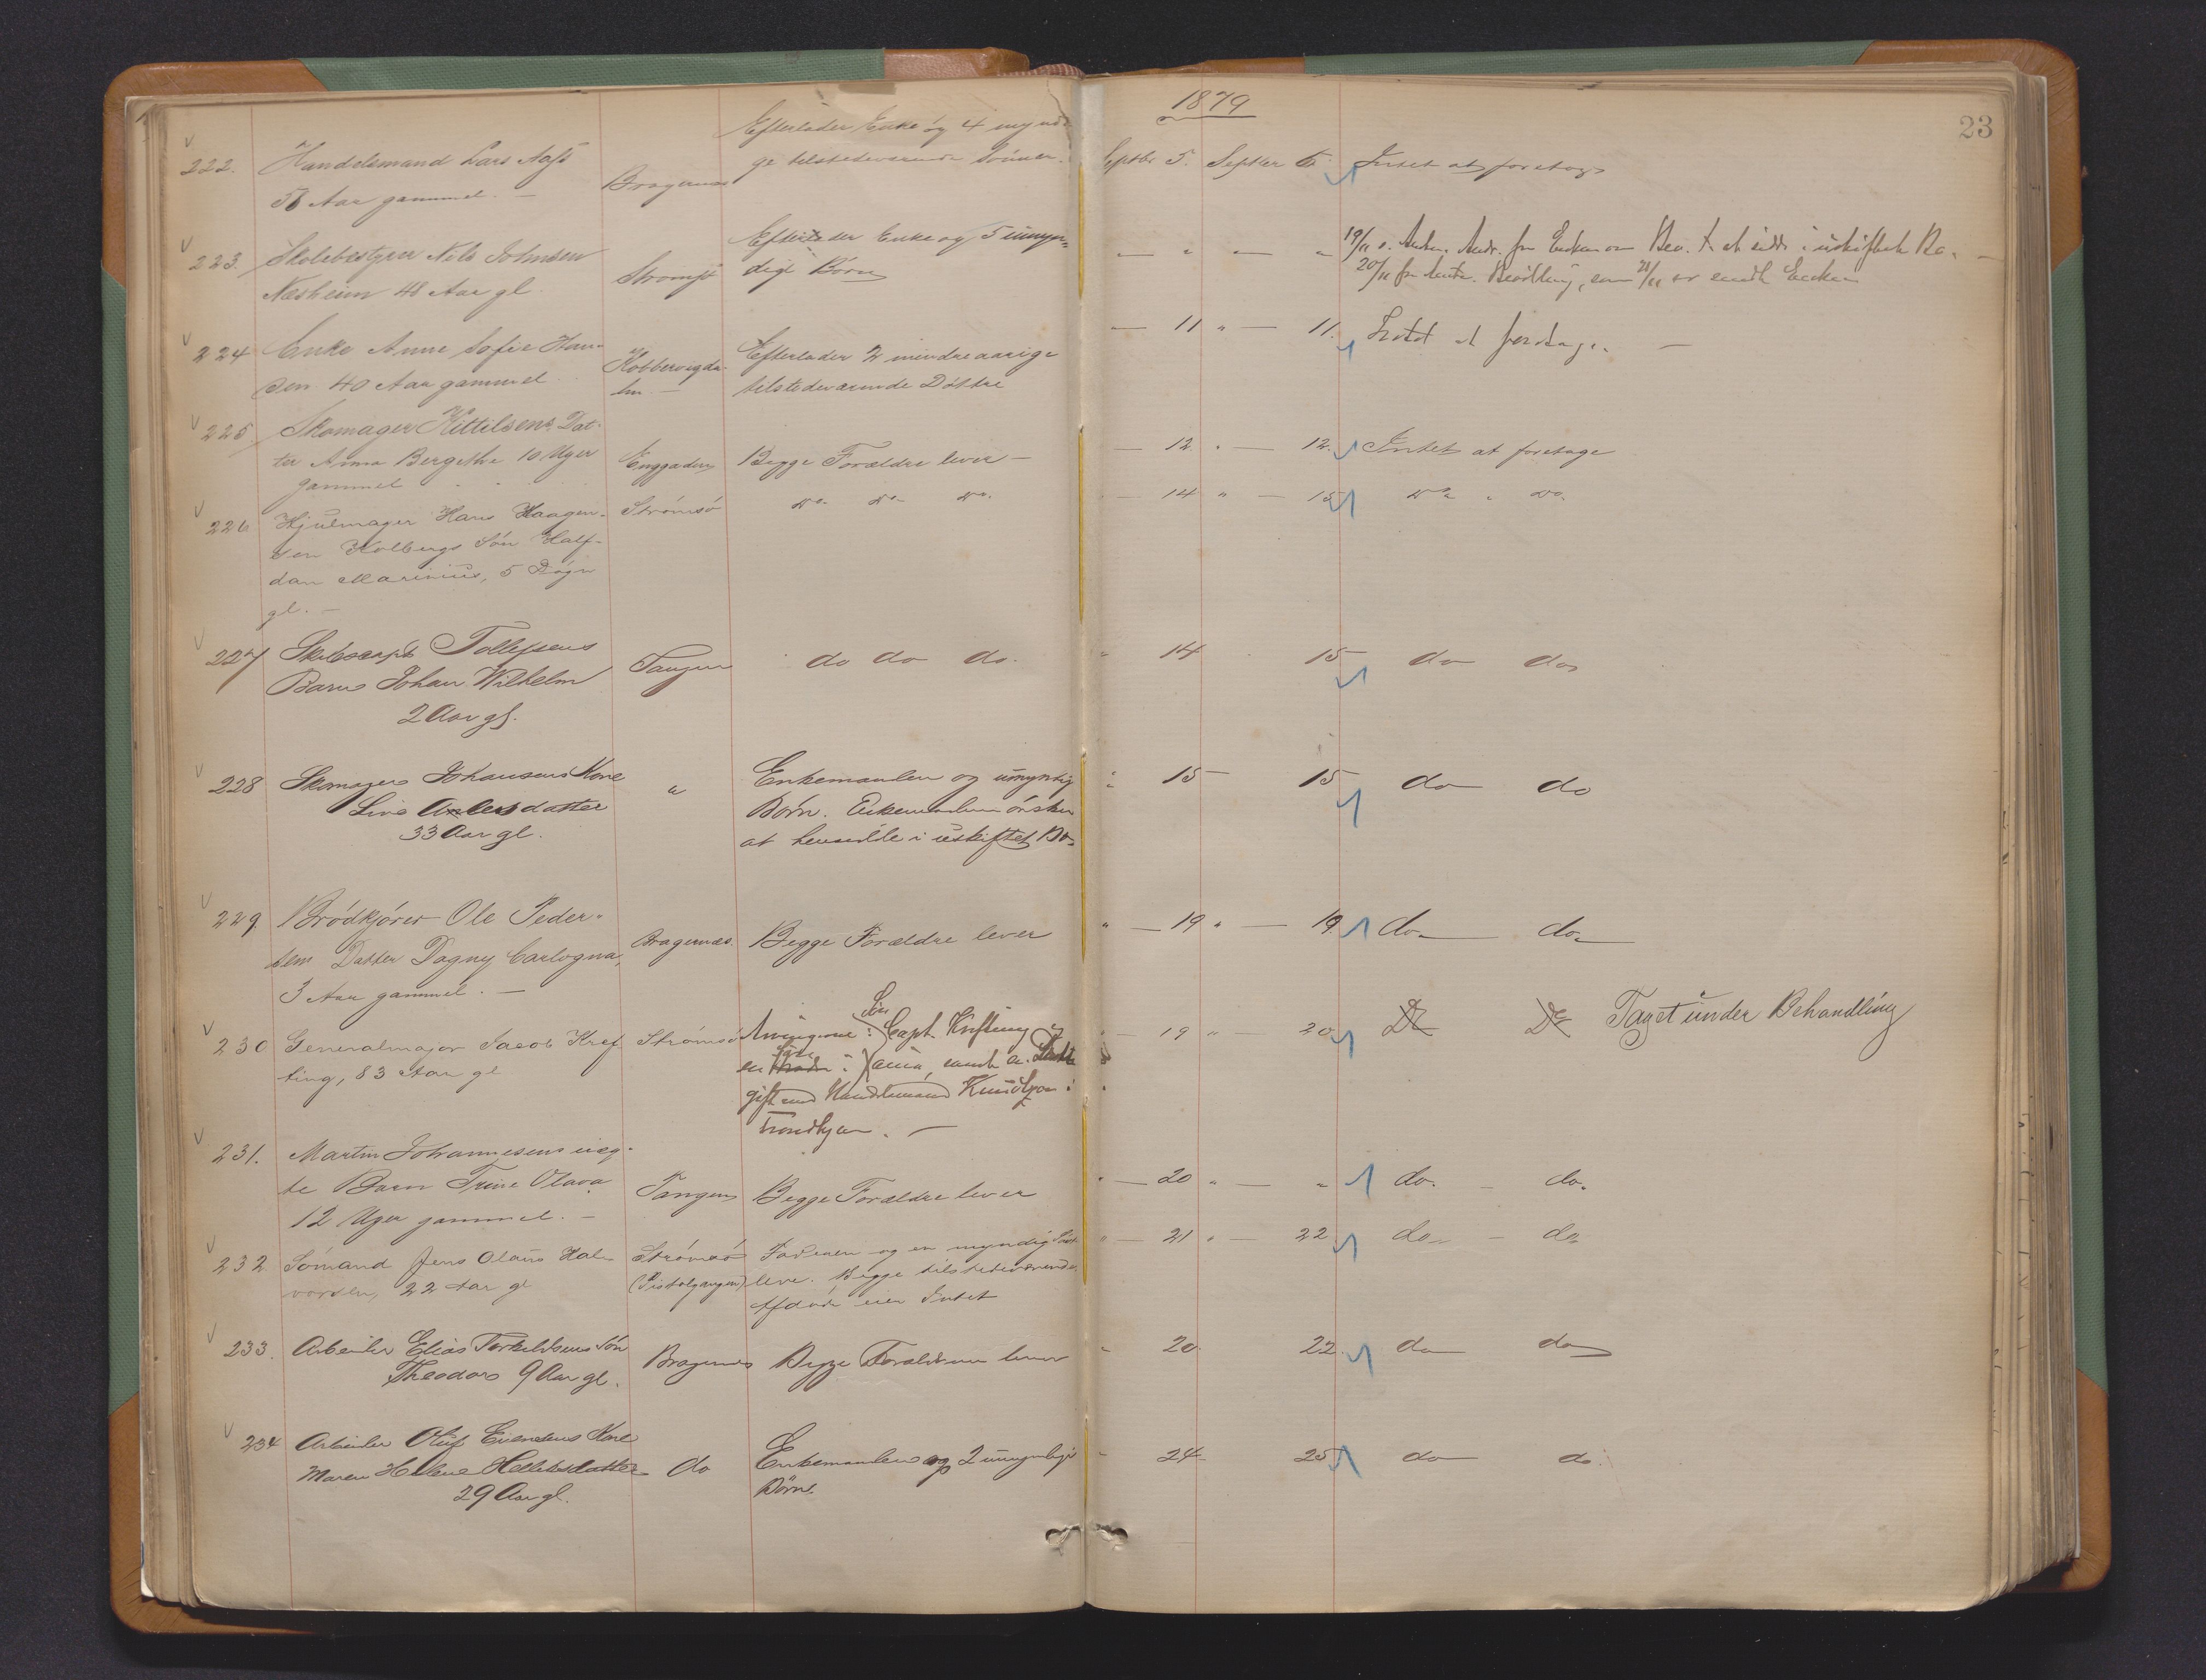 1879
23
Efterlader Enke og 4 myndi
222. Handelsmand Lars Aass
ge tilstedeværende Sönner.
Septbr 5. Septbr 6. Intet at foretage
56 Aar gammel. —
Bragernæs
223. Skolebestyrer Nils Johnsen
Efterlader Enke og 5 umyn-
Næsheim 48 Aar gl.
Strömsö
dige Börn
— " — " 19/11 Andr. fra Enken om Bev. t. at sidde i uskiftet Bo. —
20/11 fra Amtm. Bevilling, som 21/11 er sendt Enken
224 Enke Anne Sofie Han-
sen 40 Aar gammel
Kobbervigda-
len —
Efterlader 2 mindreaarige
tilstedeværende Döttre
— 11 " — 11. Intet at foretage. —
225. Skomager Kittilsens Dat-
ter Anna Bergithe 10 Uger
gammel
Enggaden
Begge Forældre lever —
— 12 " — 12. Intet at foretage
226 Hjulmager Hans Haagen-
sen Kolbergs Sön Half-
dan Marinius, 5 Dögn
gl. —
Strömsö
do. do do.
— 14 " — 15 do " do.
227 Skibscapt Tollefsens
Barn Johan Wilhelm
2 Aar gl.
Tangen
do do do.
" 14 15 do do
228 Skomager Johansens Kone
Line Andersdatter
33 Aar gl.
"
Enkemanden og umyndig
Börn. Enkemanden önsker
at hensidde i uskiftet Bo
" 15 15 do do
229. Brödkjörer Ole Peder-
sens Datter Dagny Carlogna,
3 Aar gammel. —
Bragernæs.
Begge Forældre lever
" — 19 " — 19. do do
230 Generalmajor Jacob Kref
ting, 83 Aar gl
Strömsö
Arvingerne: Sön Capt. Krefting
samt a. Datter
gift med Handelsmand Knudtzon i
Trondhjem. —
" — 19 " — 20 Do Do Taget under Behandling
231. Martin Johannesens uæg-
te Barn Trine Olava
12 Uger gammel. —
Tangen
Begge Forældre lever
" — 20 " — " do. — do.
232 Sömand Jens Olaus Hal-
vorsen, 22 Aar gl
Strömsö
(Pistolgangen)
Faderen og en myndig Söst
leve. Begge tilstedeværende.
Afdöde eier Intet
" — 21 " — 22 do — do
233. Arbeider Elias Torkildsens Sön
Theodor 9 Aar gl.
Bragernes
Begge Forældrene lever
" 20. 22. do do
234 Arbeider Oluf Evensens Kone
Maren Helene Helletsdatter
29 Aar gl.
do
Enkemanden og 2 umyndige
Börn.
" 24 25 do do.